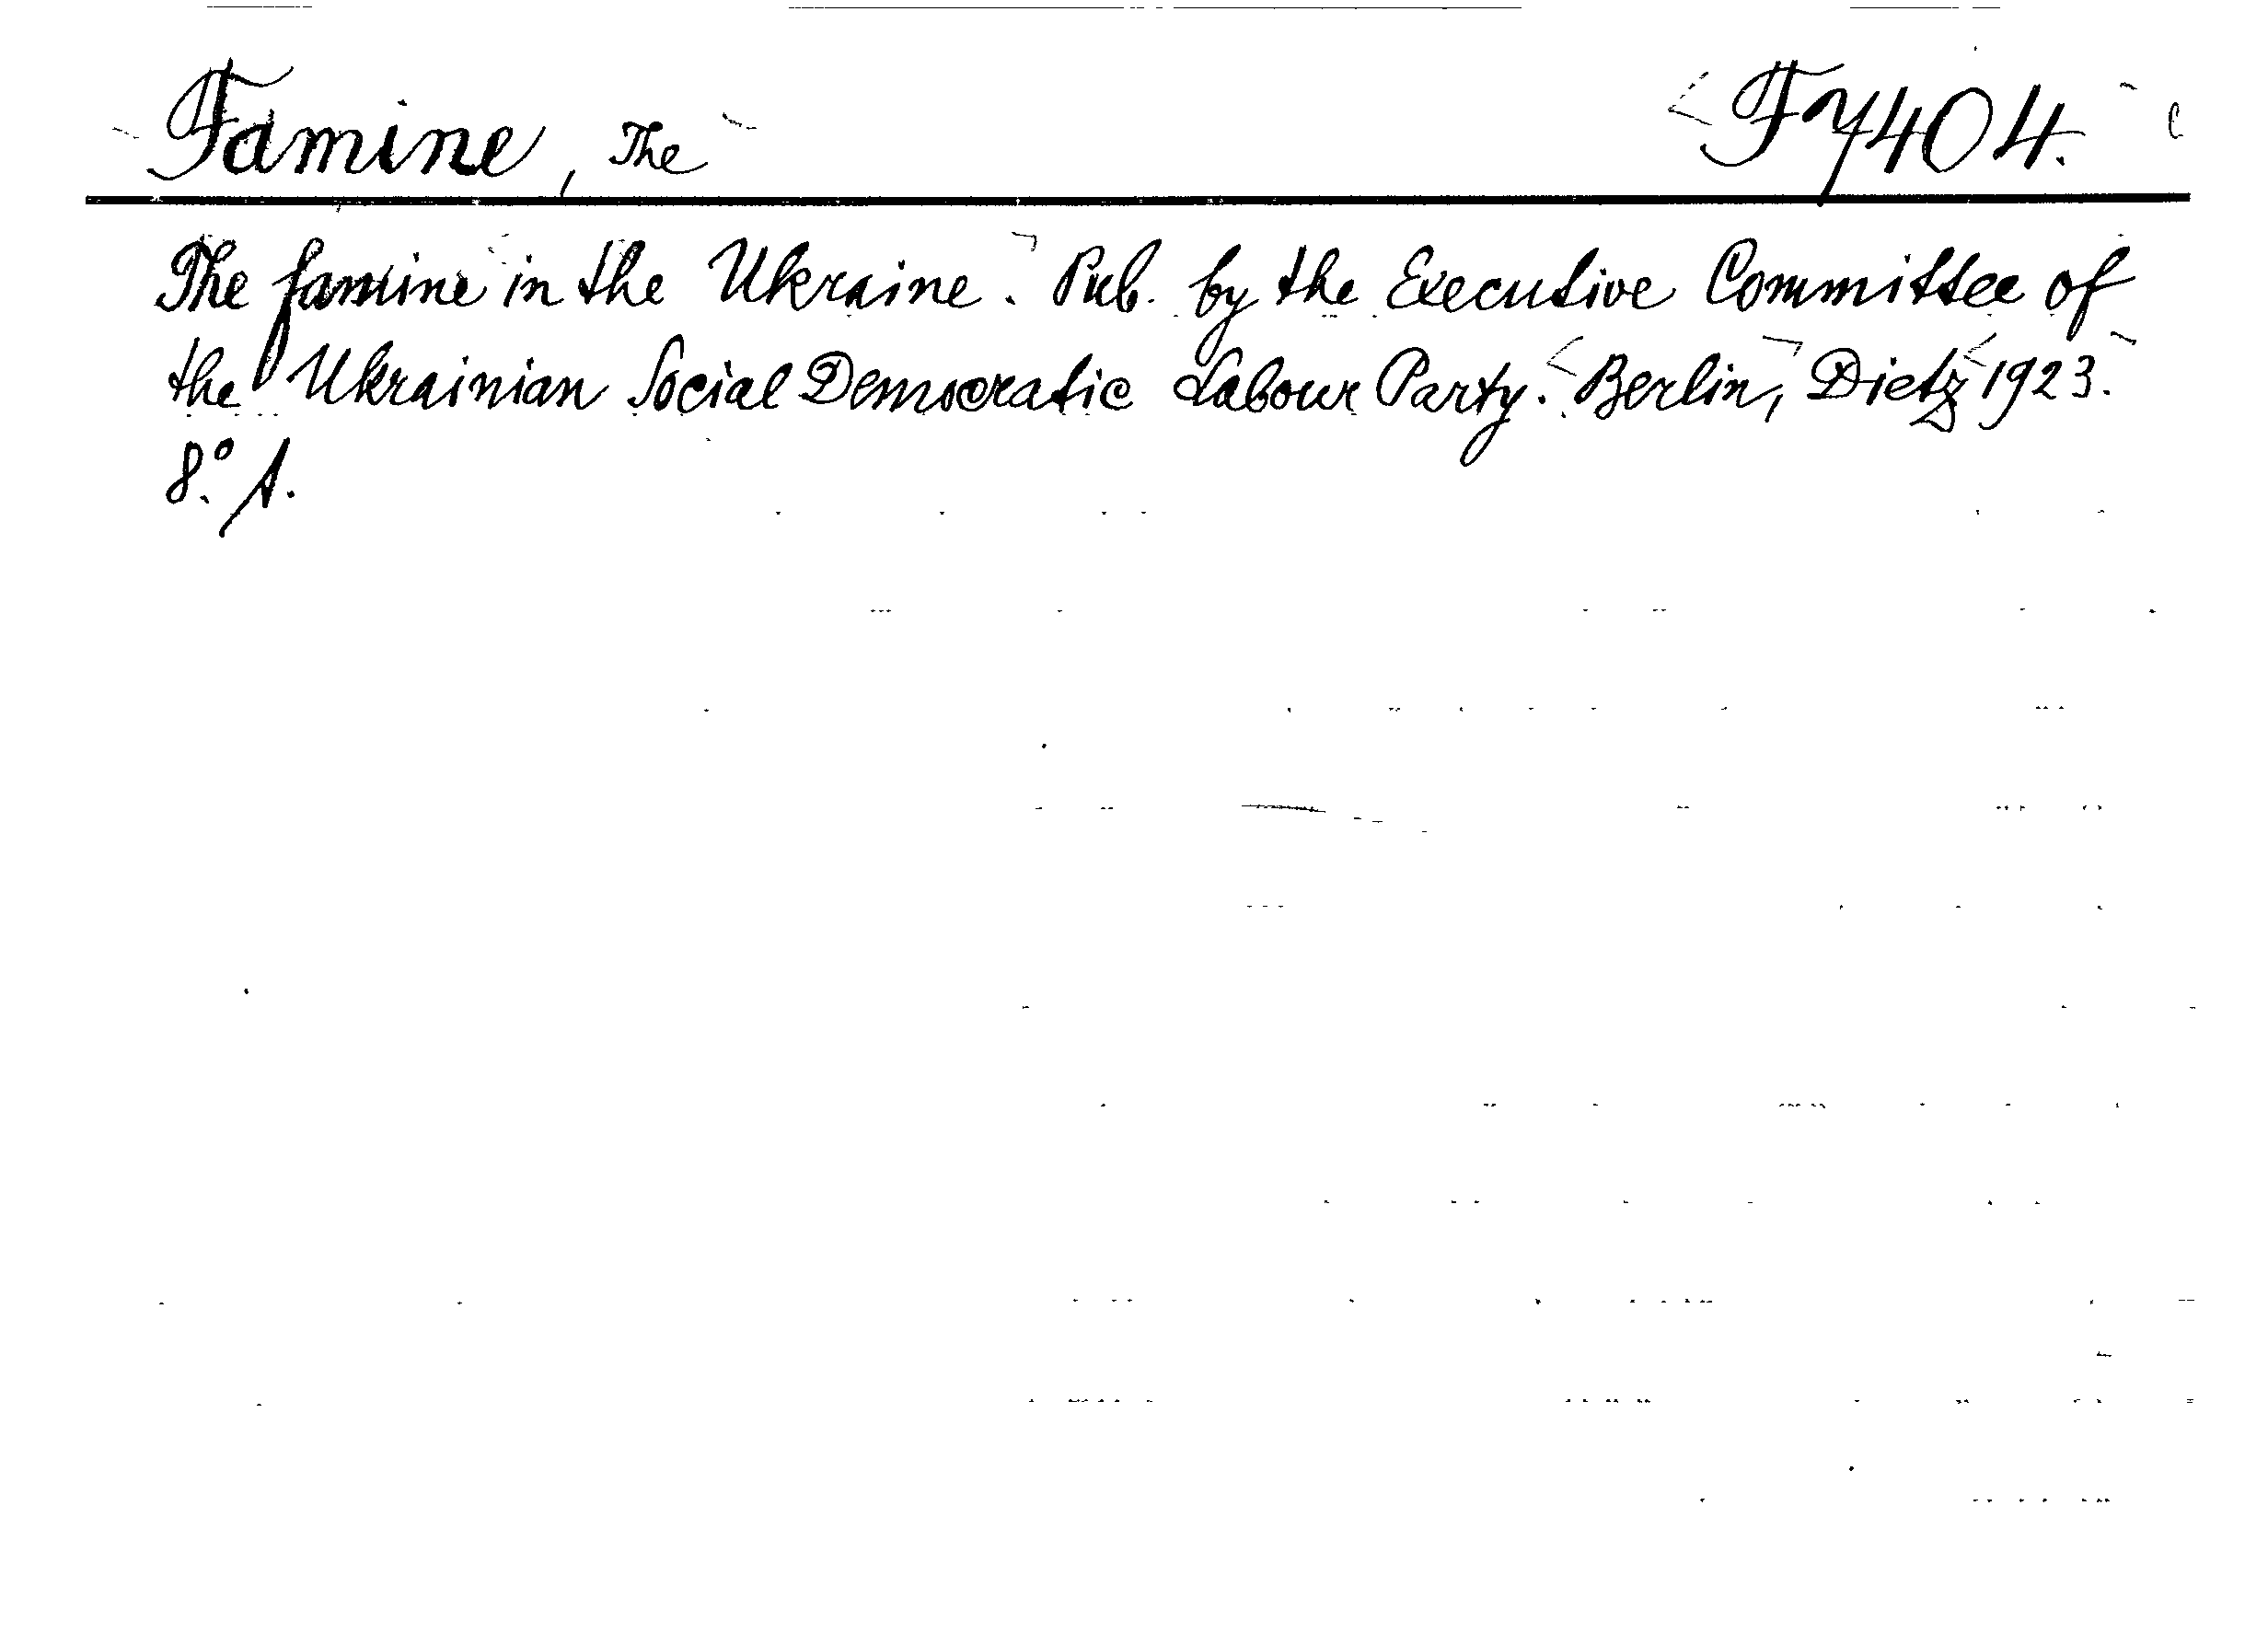 Famine, The F7404.
The famine in the Ukraine. Pub. by the Executive Committee of
the Ukrainian Social Democratic Labour Party. Berlin, Dietz 1923.
8.° A.